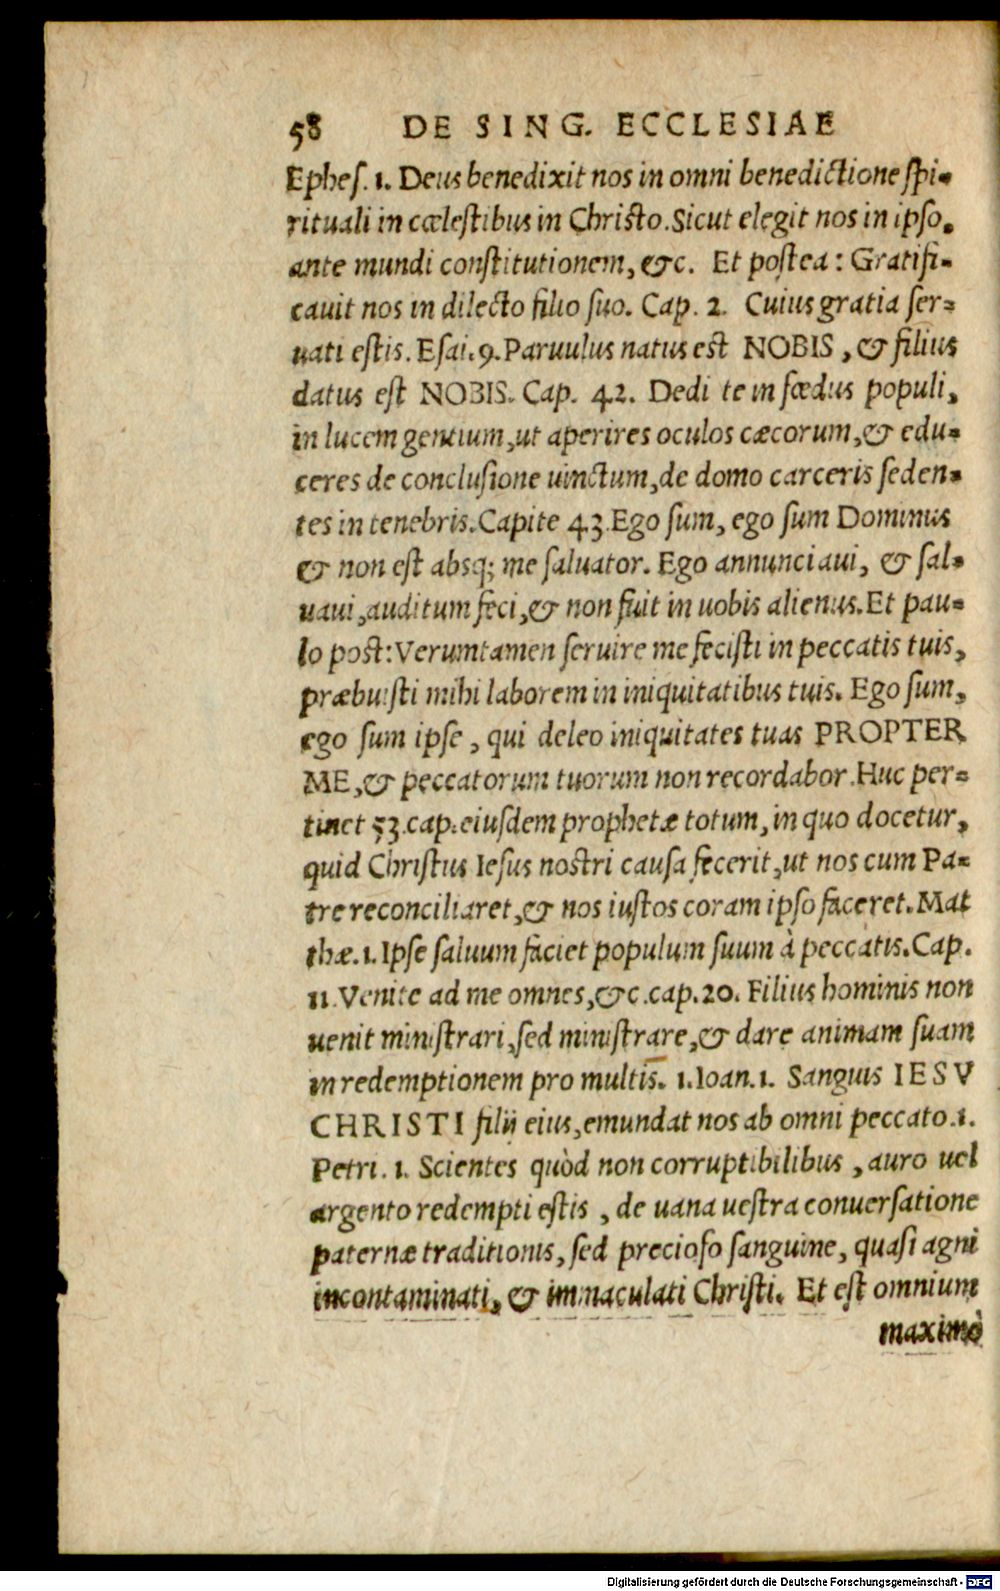 58 DE SING. ECCLESIAE
Epheſ. 1. Deus benedixit nos in omni benedictione ſpi-
rituali in cœleſtibus in Chriſto. Sicut elegit nos in ipſo.
ante mundi conſtitutionem, &c. Et poſtea: Gratifi-
cauit nos in dilecto filio ſuo. Cap. 2. Cuius gratia ſer-
uati eſtis. Eſai. 9. Paruulus natus eſt NOBIS, & filius
datus eſt NOBIS. Cap. 42. Dedi te in fœdus populi,
in lucem gentium, ut aperires oculos cæcorum, & edu-
ceres de concluſione uinctum, de domo carceris ſeden-
tes in tenebris. Capite 43. Ego ſum, ego ſum Dominus
& non eſt absq; me ſaluator. Ego annunciaui, & ſal-
uaui, auditum feci, & non fuit in uobis alienus. Et pau-
lo poſt: Veruntamen ſeruire me feciſti in peccatis tuis,
præbuiſti mihi laborem in iniquitatibus tuis. Ego ſum,
ego ſum ipſe, qui deleo iniquitates tuas PROPTER
ME, & peccatorum tuorum non recordabor. Huc per-
tinet 53. cap. eiuſdem prophetæ totum, in quo docetur,
quid Chriſtus Ieſus noſtri cauſa fecerit, ut nos cum Pa-
tre reconciliaret, & nos iuſtos coram ipſo faceret. Mat
thæ. 1. Ipſe ſaluum faciet populum ſuum à peccatis. Cap.
11. Venite ad me omnes, &c. cap. 20. Filius hominis non
uenit miniſtrari, ſed miniſtrare, & dare animam ſuam
in redemptionem pro multis. 1. Ioan. 1. Sanguis IESV
CHRISTI filii eius, emundat nos ab omni peccato. 1.
Petri. 1. Scientes quòd non corruptibilibus, auro uel
argento redempti eſtis, de uana ueſtra conuerſatione
paternæ traditionis, ſed precioſo ſanguine, quaſi agni
incontaminati, & immaculati Chriſti. Et eſt omnium
maximè
Digitalisierung gefördert durch die Deutsche Forschungsgemeinschaft - DFG